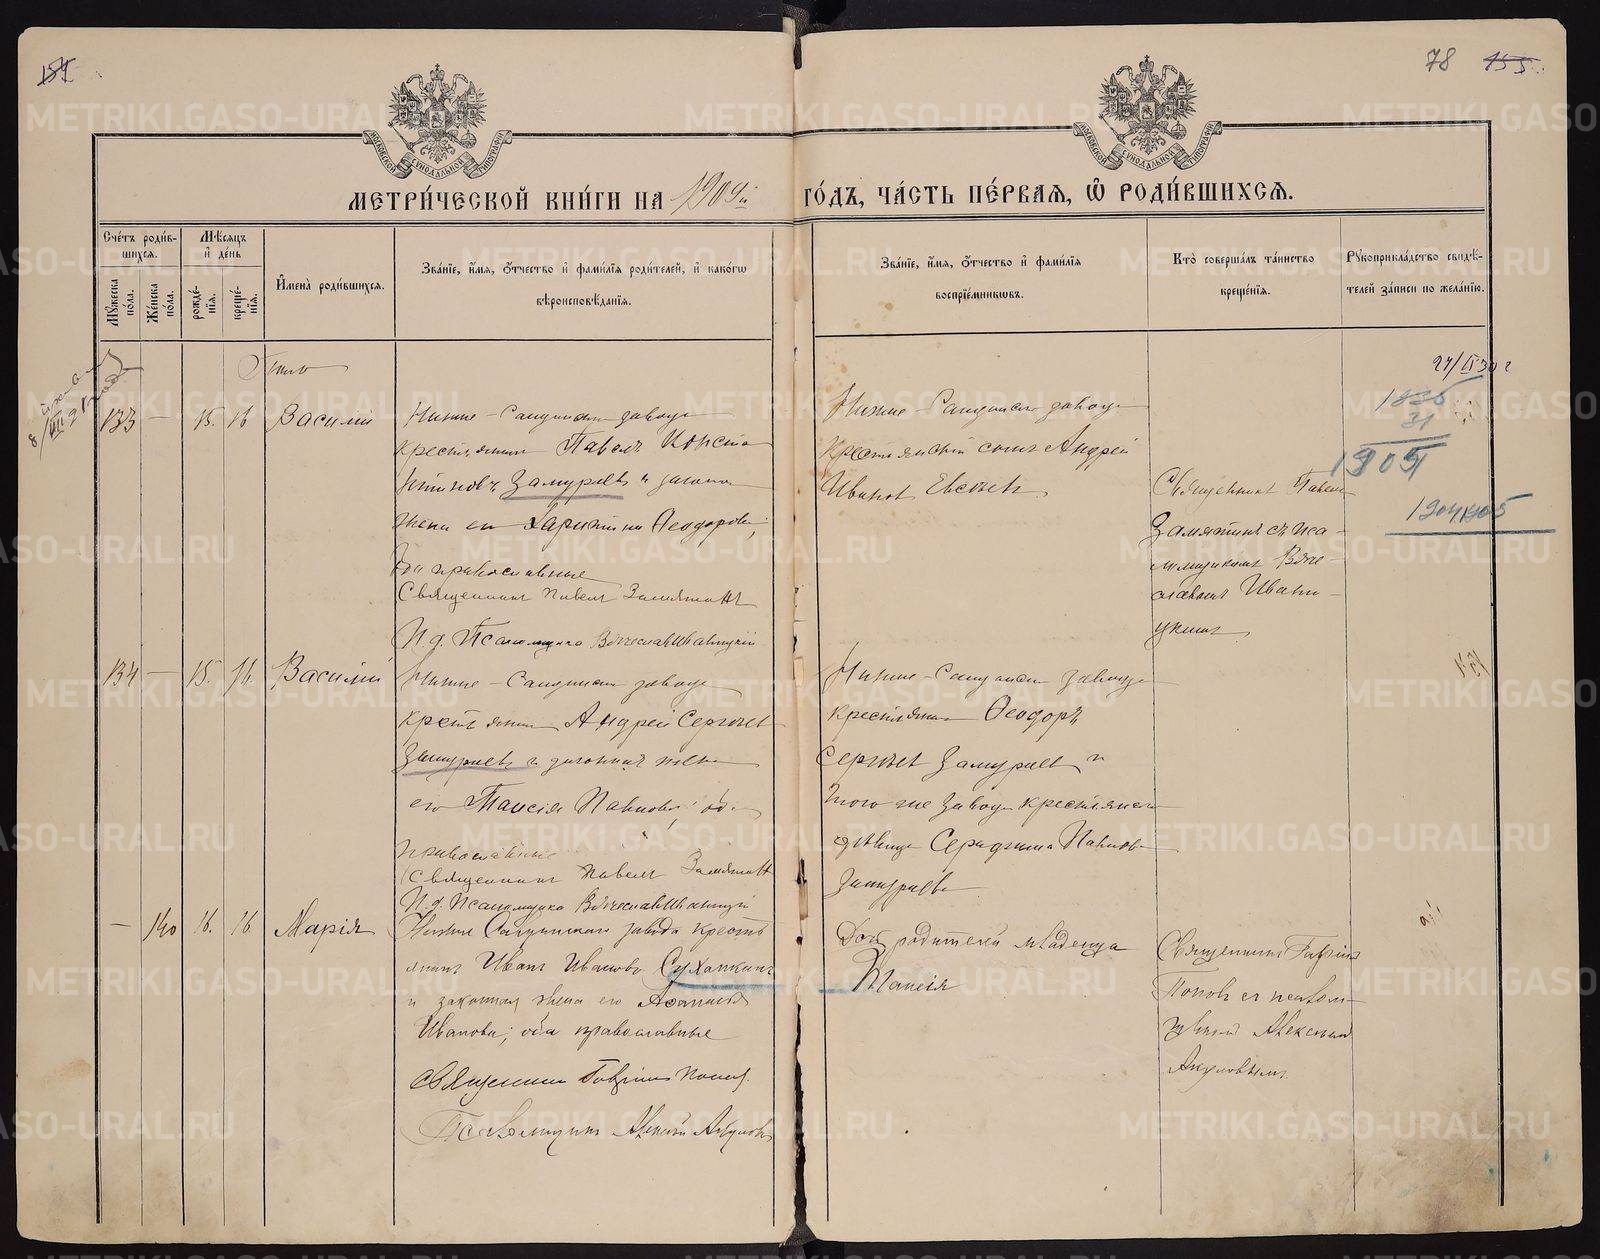 78 155
МОСКОВСКОЙ СУНОДАЛЬНОЙ ТИПОГРАФІИ
МОСКОВСКОЙ СУНОДАЛЬНОЙ ТИПОГРАФІИ
МЕТРИ́ЧЕСКОЙ КНИ́ГИ НА 1909й ГО́ДЪ, ЧА́СТЬ ПЕ́РВАЯ, Ѽ РОДИ́ВШИХСЯ.
Сче́тъ роди́вшихся.
Мѣ́сяцъ и҆ де́нь
Му́жеска по́ла.
Же́нска по́ла.
рожде́нїя.
креще́нїя.
И҆мена̀ роди́вшихся.
Зва́нїе, и҆́мя, ѻ҆́тчество и҆ фами́лїя роди́телей, и҆ како́гѡ
вѣроисповѣ́данїя.
Зва́нїе, и҆́мя, ѻ҆́тчество и҆ фами́лїя
воспрїе́мникѡвъ.
Кто̀ соверша́лъ та́инство
креще́нїя.
Рꙋкоприкла́дство свидѣ́-
телей за́писи по жела́нїю.
133 — 15. 16 Василій
Нижне-Салдинскаго завода
крестьянинъ Павелъ Конста
нтиновъ Замураевъ и законная
жена его Харитина Феодорова;
оба православные
Священникъ Павелъ Замятинъ
И. д. Псаломщика Вячеслав Иваницкій
Нижне-Салдинскаго завода
Крестьянскій сынъ Андрей
Ивановъ Евсеевъ
Священникъ Павелъ
Замятинъ съ пса-
ломщикомъ Вяче-
славомъ Иваниц-
кимъ
134 — 15. 16. Василій
Нижне-Салдинскаго завода
крестьянинъ Андрей Сергеевъ
Замураевъ и законная жена
его Таисія Павлова; оба
православные
Священникъ Павелъ Замятинъ
И. д. Псаломщика Вячеслав Иваницкій
Нижне-Салдинскаго завода
крестьянинъ Феодоръ
Сергеевъ Замураевъ и
того же завода крестьянская
дѣвица Серафима Павлова
Замураева
— 140 16. 16. Марія
Нижне Салдинскаго завода кресть
янинъ Иванъ Ивановъ Суханкинъ
и законная жена его Афанасія
Иванова; оба православные
Священникъ Гавріилъ Поповъ.
Псаломщикъ Алексѣй
Таисія
Священникъ Гавріилъ
Поповъ съ псалом-
щикомъ Алексѣемъ
METRIKI.GASO-URAL.RU